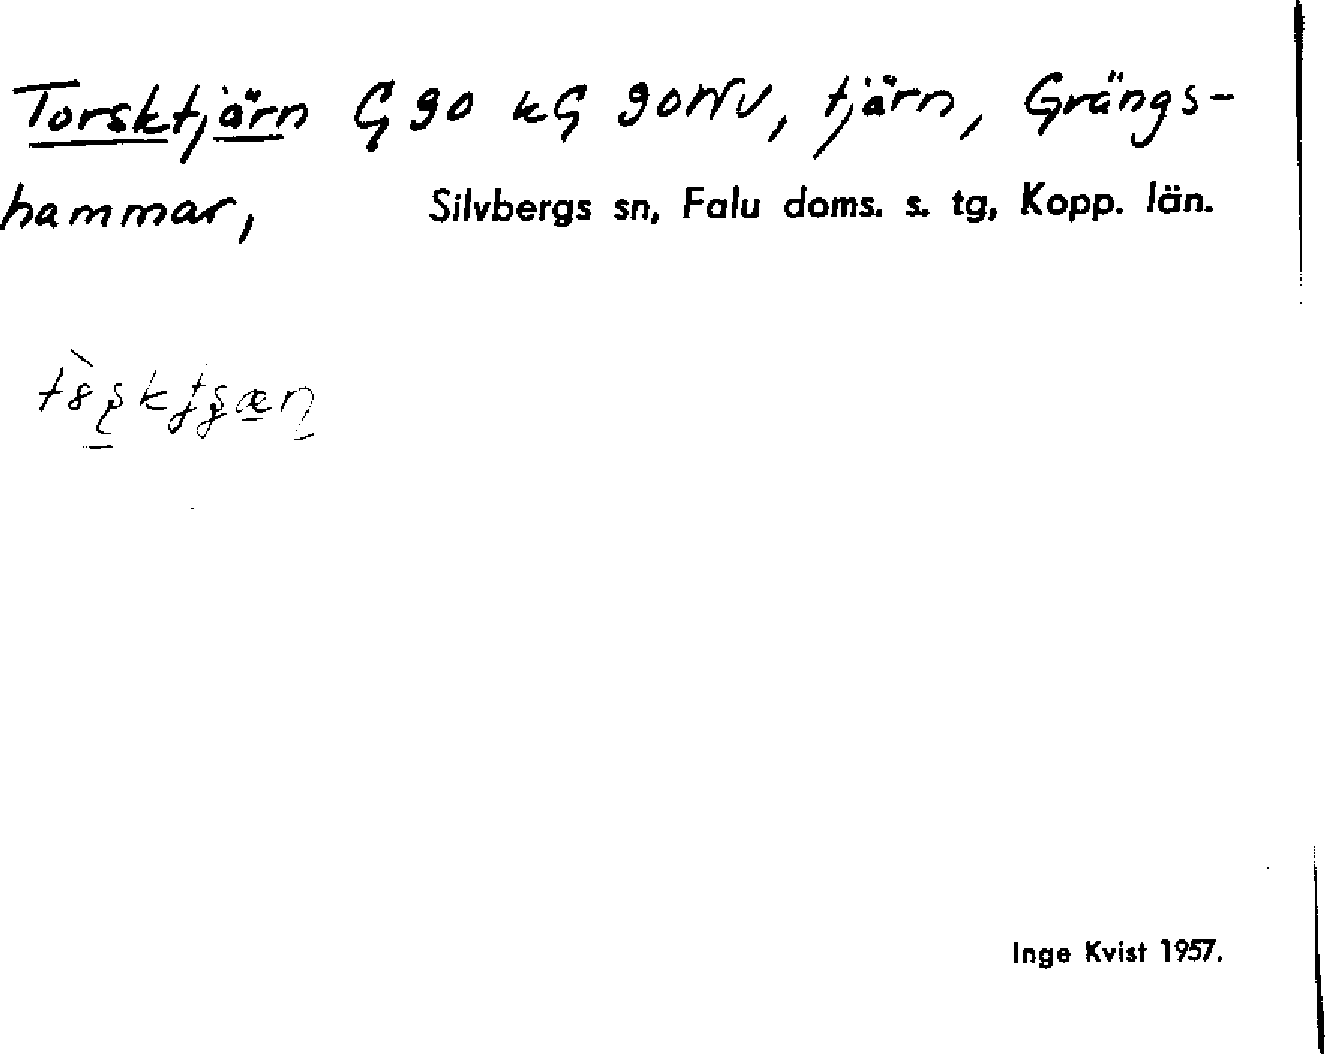 Torsktjärn G 90 kG 90NV, tjärn, Grängs-
hammar, Silvbergs sn, Falu doms. s. tg, Kopp. län.
Inge Kvist 1957.